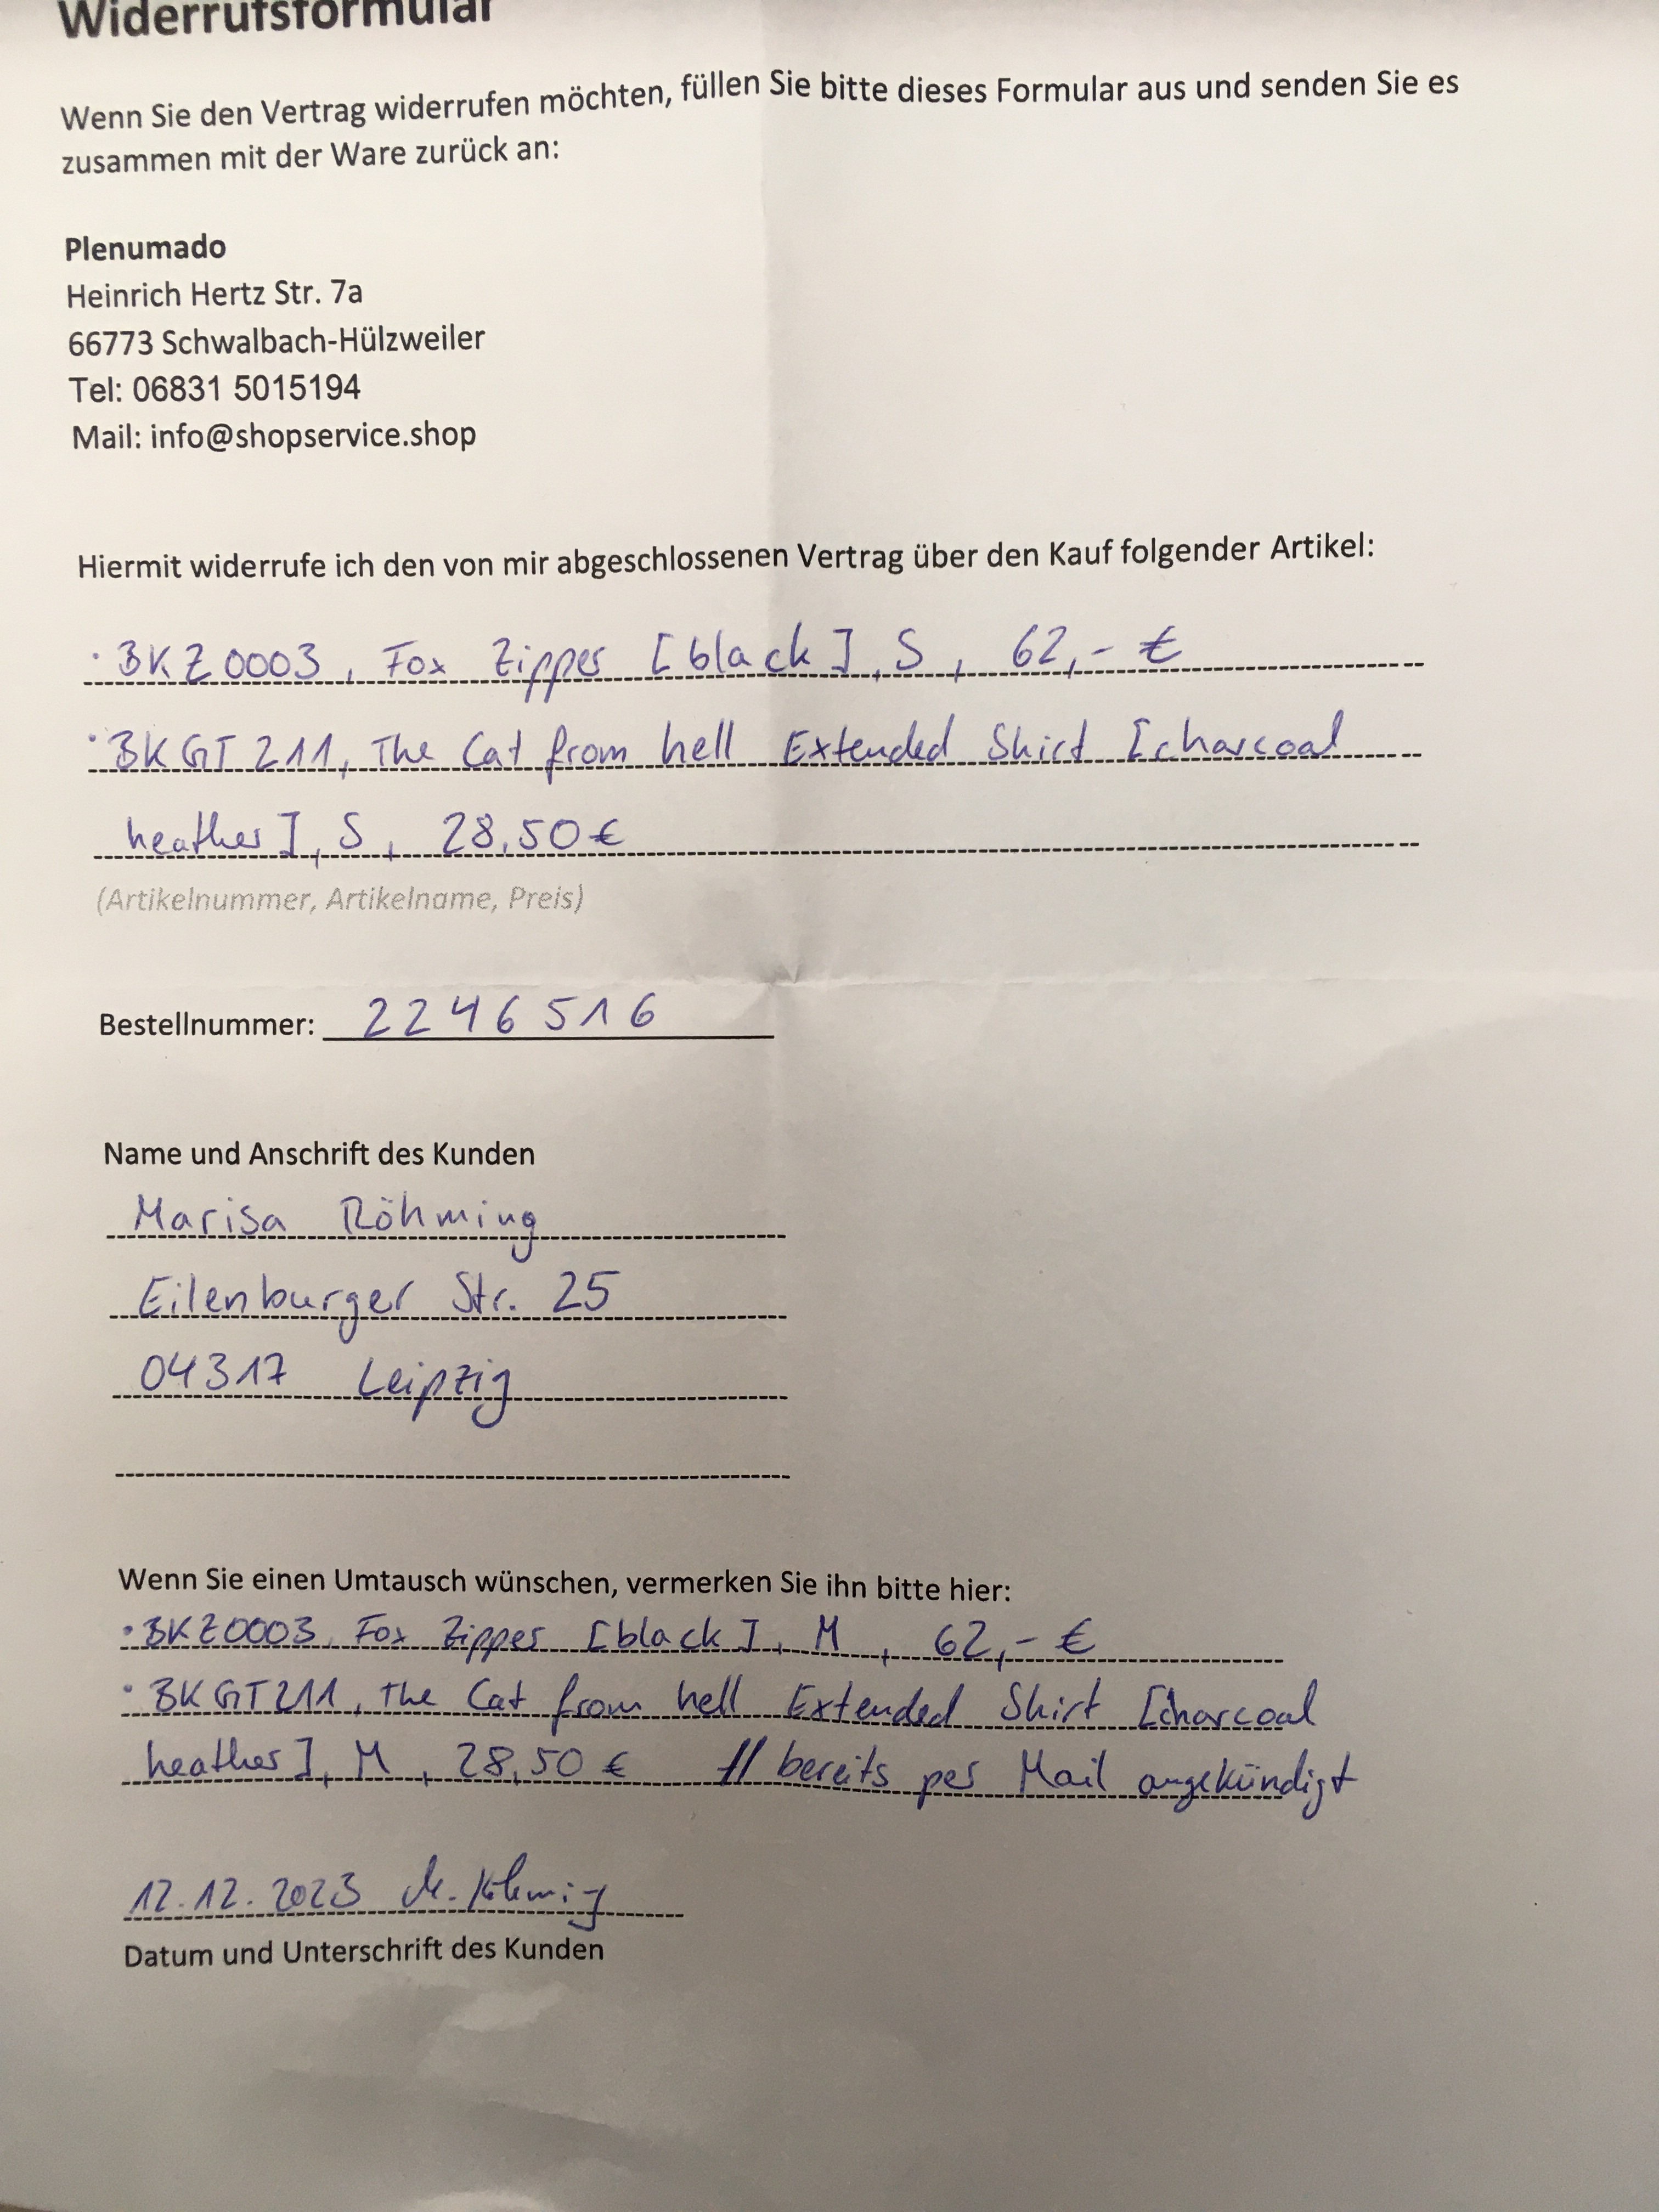 Widerrufsformular
Wenn Sie den Vertrag widerrufen möchten, füllen Sie bitte dieses Formular aus und senden Sie es
zusammen mit der Ware zurück an:
Plenumado
Heinrich Hertz Str. 7a
66773 Schwalbach-Hülzweiler
Tel: 06831 5015194
Mail: info@shopservice.shop
Hiermit widerrufe ich den von mir abgeschlossenen Vertrag über den Kauf folgender Artikel:
· BKZ0003, Fox Zipper [black], S, 62,- €
· BKGT211, The Cat from hell Extended Shirt [charcoal
heather], S, 28,50 €
(Artikelnummer, Artikelname, Preis)
Bestellnummer: 2246516
Name und Anschrift des Kunden
Marisa Röhming
Eilenburger Str. 25
04317 Leipzig
Wenn Sie einen Umtausch wünschen, vermerken Sie ihn bitte hier:
· BKZ0003, Fox Zipper [black], M, 62,- €
· BKGT211, The Cat from hell Extended Shirt [charcoal
heather], M, 28,50 € // bereits per Mail angekündigt
12.12.2023 M. Röhming
Datum und Unterschrift des Kunden